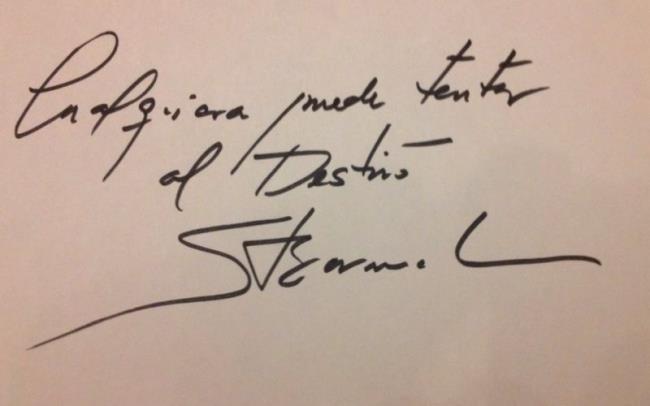 Cualquiera puede tentar
al Destino